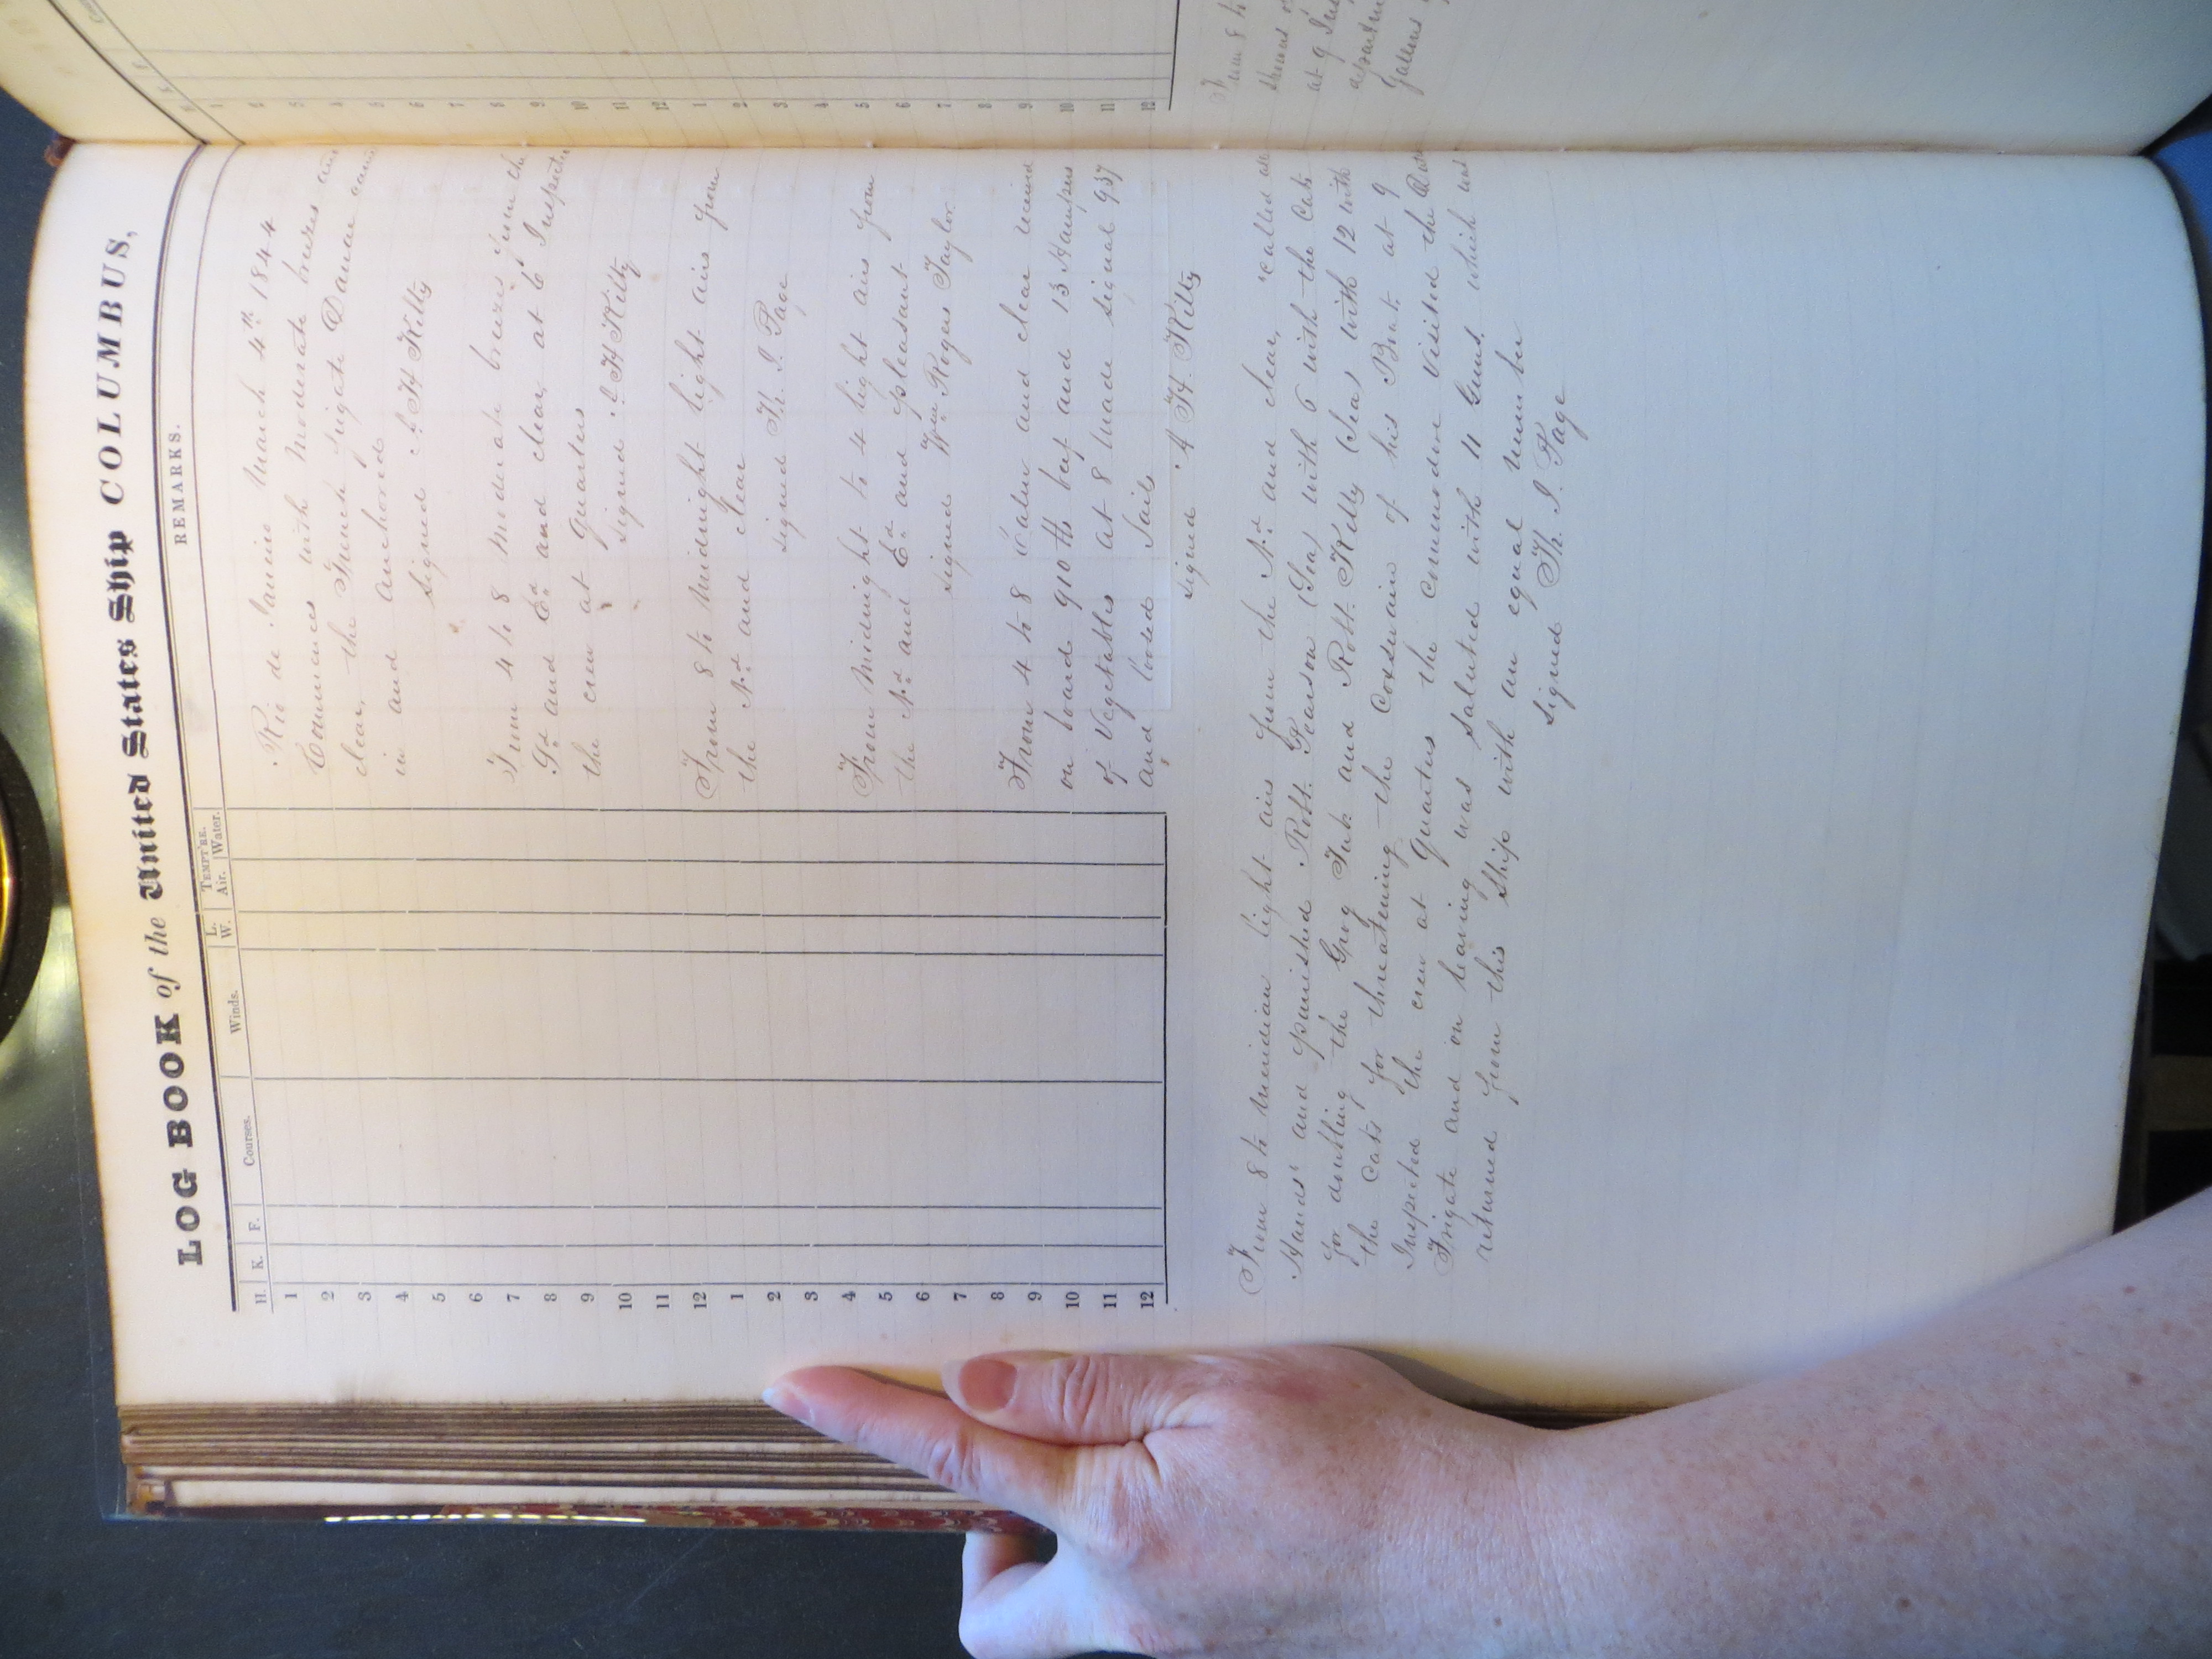 LOG BOOK of the United States Ship COLUMBUS,
H. K. F. Courses. Winds. L. W. TEMPT'RE. Air. Water. REMARKS.
1
2
3
4
5
6
7
8
9
10
11
12
1
2
3
4
5
6
7
8
9
10
11
12
Rio de Janeiro March 4th 1844
Commences with Moderate breezes and
clear, the French frigate Danae came
in and anchored
signed A H Kilty
From 4 to 8 Moderate breezes from the
Sd and Ed and clear, at 6 Inspected
the crew at quarters
signed A H Kilty
From 8 to Midnight light airs from
the Nd and clear
signed Th. J. Page
From Midnight to 4 light airs from
the Nd and Ed and pleasant
signed Wm Rogers Taylor
From 4 to 8 Calm and clear received
on board 910 lbs beef and 13 Hampers
of Vegetables at 8 Made signal 937
and loosed Sails
signed A H. Kilty
From 8 to Meridian light airs from the Nd and clear, "called all
Hands" and punished Robt. Pearson (Sea) with 6 with the Cats
for doubling the Grog Tub and Robt. Kelly (Sea) with 12 with
the Cats for threatening the Coxswain of his Boat at 9
Inspected the crew at Quarters the Commodore visited the
Frigate and on leaving was Saluted with 11 Guns, which was
returned from this Ship with an equal number
Signed Th. J. Page
1
2
3
4
5
6
7
8
9
10
11
12
1
2
3
4
5
6
7
8
9
10
11
12
From 8 to
at 9
Gallons